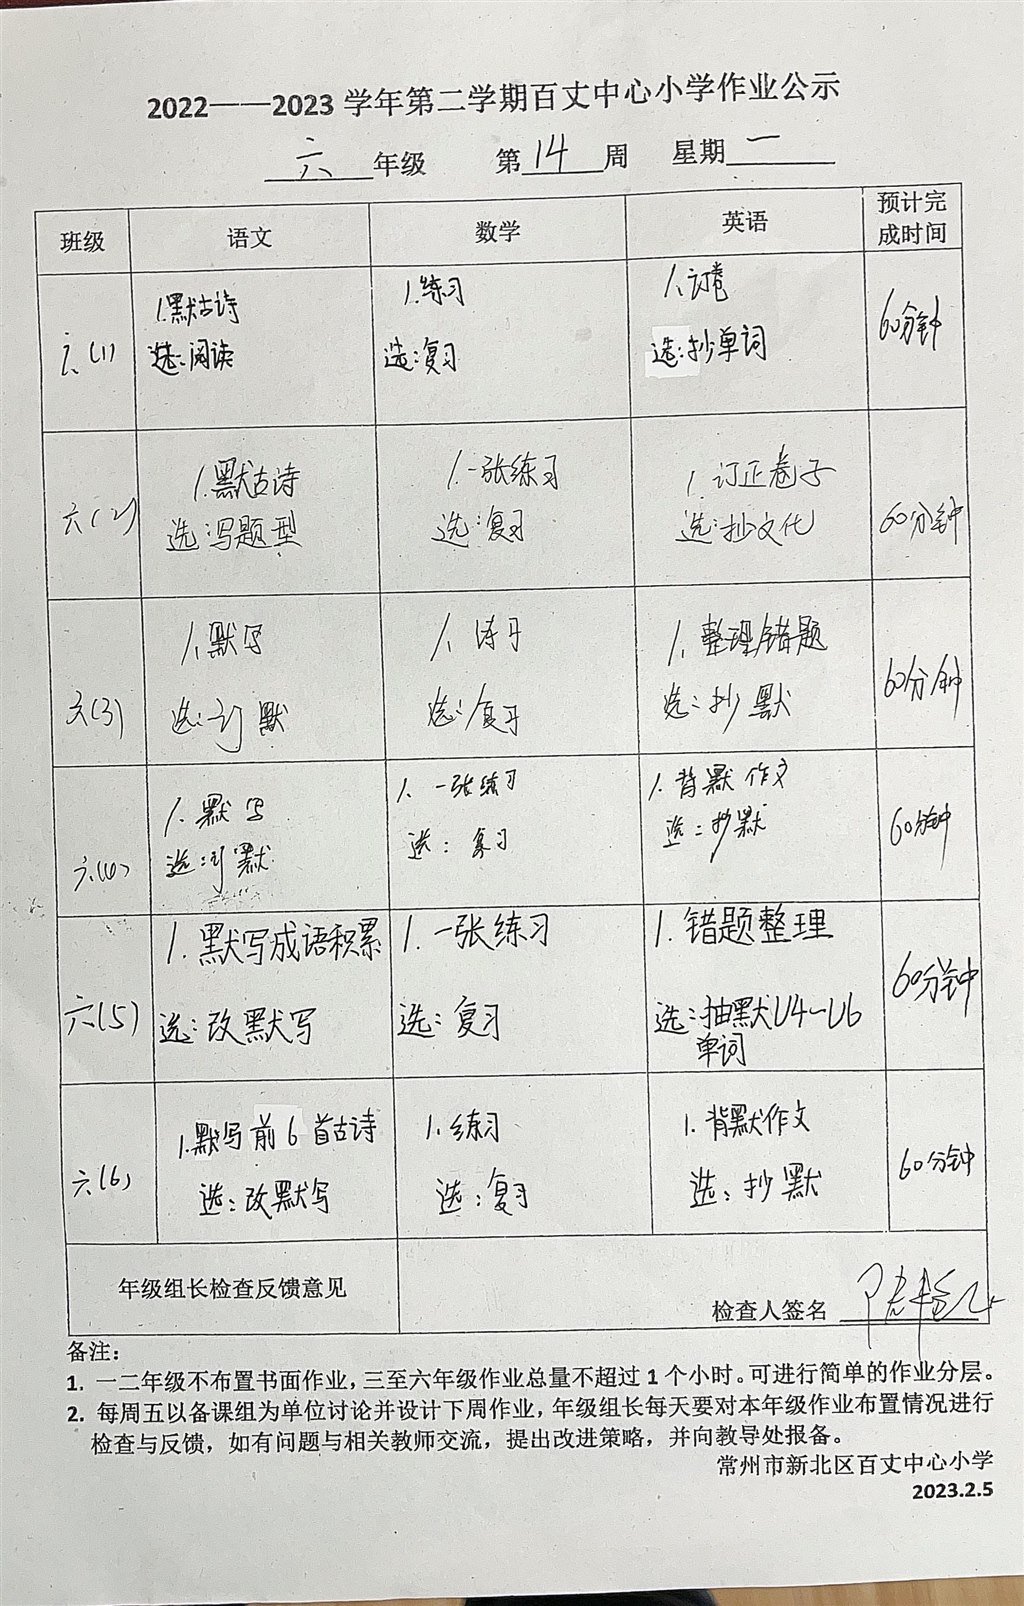 2022——2023 学年第二学期百丈中心小学作业公示
六 年级 第 14 周 星期 一
班级 语文 数学 英语 预计完成时间
六(1) 1.默古诗 1.练习 1.订卷 60分钟
选:阅读 选:复习 选:抄单词
六(2) 1.默古诗 1.一张练习 1.订正卷子 60分钟
选:写题型 选:复习 选:抄文化
六(3) 1.默写 1.练习 1.整理错题 60分钟
选:订默 选:复习 选:抄默
六(4) 1.默写 1.一张练习 1.背默作文 60分钟
选:订默 选:复习 选:抄默
六(5) 1.默写成语积累 1.一张练习 1.错题整理 60分钟
选:改默写 选:复习 选:抽默U4—U6
单词
六(6) 1.默写前6首古诗 1.练习 1.背默作文 60分钟
选:改默写 选:复习 选:抄默
年级组长检查反馈意见
检查人签名
备注:
1. 一二年级不布置书面作业,三至六年级作业总量不超过 1 个小时。可进行简单的作业分层。
2. 每周五以备课组为单位讨论并设计下周作业,年级组长每天要对本年级作业布置情况进行
检查与反馈,如有问题与相关教师交流,提出改进策略,并向教导处报备。
常州市新北区百丈中心小学
2023.2.5